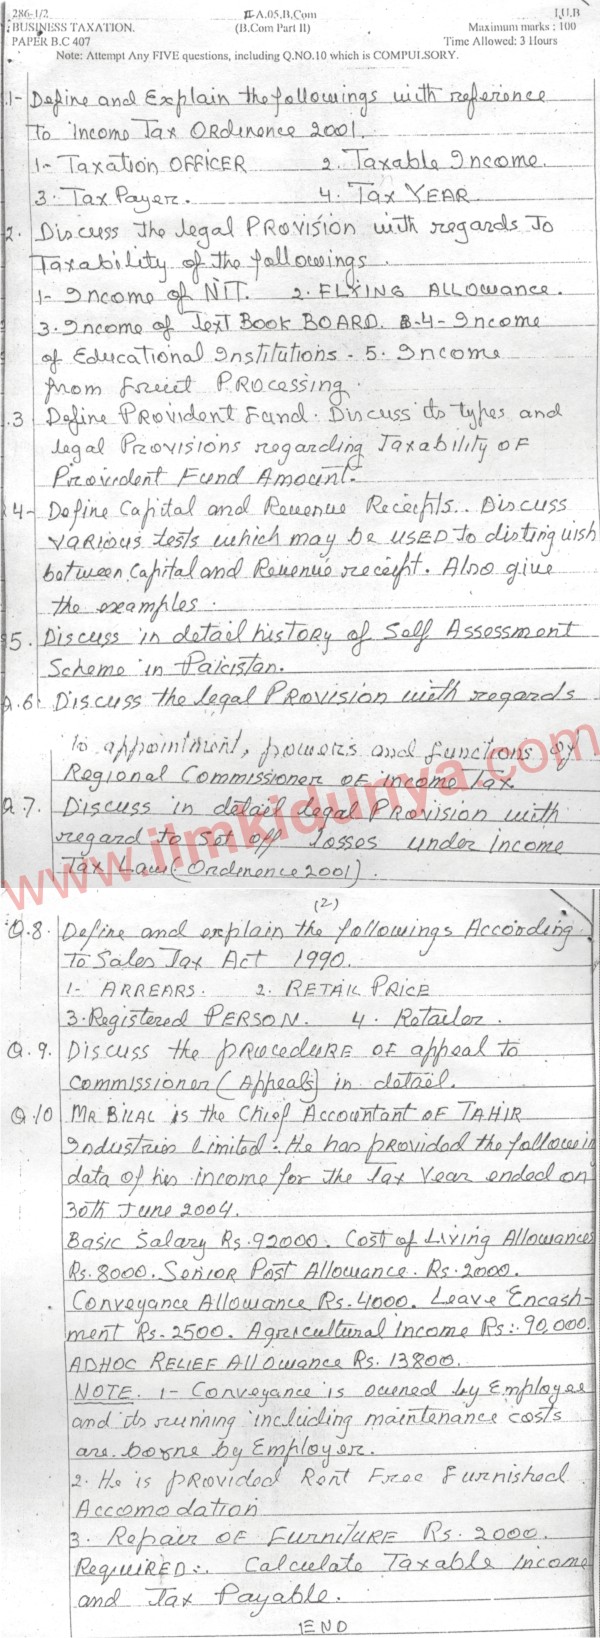 286-1/2 II-A.05.B.Com I.U.B
BUSINESS TAXATION. (B.Com Part II) Maximum marks : 100
PAPER B.C 407 Time Allowed: 3 Hours
Note: Attempt Any FIVE questions, including Q.NO.10 which is COMPULSORY.
.1- Define and Explain the followings with reference
to Income Tax Ordinence 2001.
1- Taxation OFFICER 2. Taxable Income.
3. Tax Payer. 4. Tax YEAR
2. Discuss the legal PROVISION with regards To
Taxability of the followings.
1- Income of NIT. 2. FLYING ALLOWANCE.
3. Income of Text Book BOARD. 4- Income
of Educational Institutions - 5. Income
from Freiet PROCessing.
.3 Define PROVIDENT Fund. Discuss its types and
legal PROVISIONS regarding Taxability OF
Provident Fund Amount.
4- Define Capital and Revenue Receipts.. Discuss
VARIOUS tests which may be USED To distinguish
between Capital and Revenue receipt. Also give
the examples.
5. Discuss in detail history of Self Assessment
Scheme in Pakistan.
Q.6. Discuss the legal PROVISION with regards
to appointment, powers and functions of
Regional Commissioner OF income Tax
Q.7. Discuss in detail legal PROVISION with
regard to Set off losses under income
Tax Law (Ordinence 2001).
www.ilmkidunya.com
(2)
Q.8. Define and explain the followings According
To Sales Tax Act 1990.
1- ARREARS. 2. RETAIL PRICE
3. Registered PERSON. 4. Retailer.
Q.9. Discuss the PROCEDURE OF appeal to
Commissioner (Appeals) in detail.
Q.10 MR BILAL is the Chief Accountant OF TAHIR
Industries Limited. He has provided the followin
data of his income for the Tax Year ended on
30th June 2004.
Basic Salary Rs. 92000. Cost of Living Allowances
Rs. 8000. SENIOR Post Allowance. Rs. 2000.
Conveyance Allowance Rs. 4000. Leave Encash-
ment Rs. 2500. Agricultural income Rs:. 90,000.
ADHOC RELIEF Allowance Rs. 13800.
NOTE. 1- Conveyance is owened by Employee
and its running including maintenance costs
are borne by Employer.
2. He is PROVIDED Rent Free Furnished
Accomodation
3. Repair OF FURNITURE Rs. 2000.
REQUIRED:. Calculate Taxable income
and Tax Payable.
END